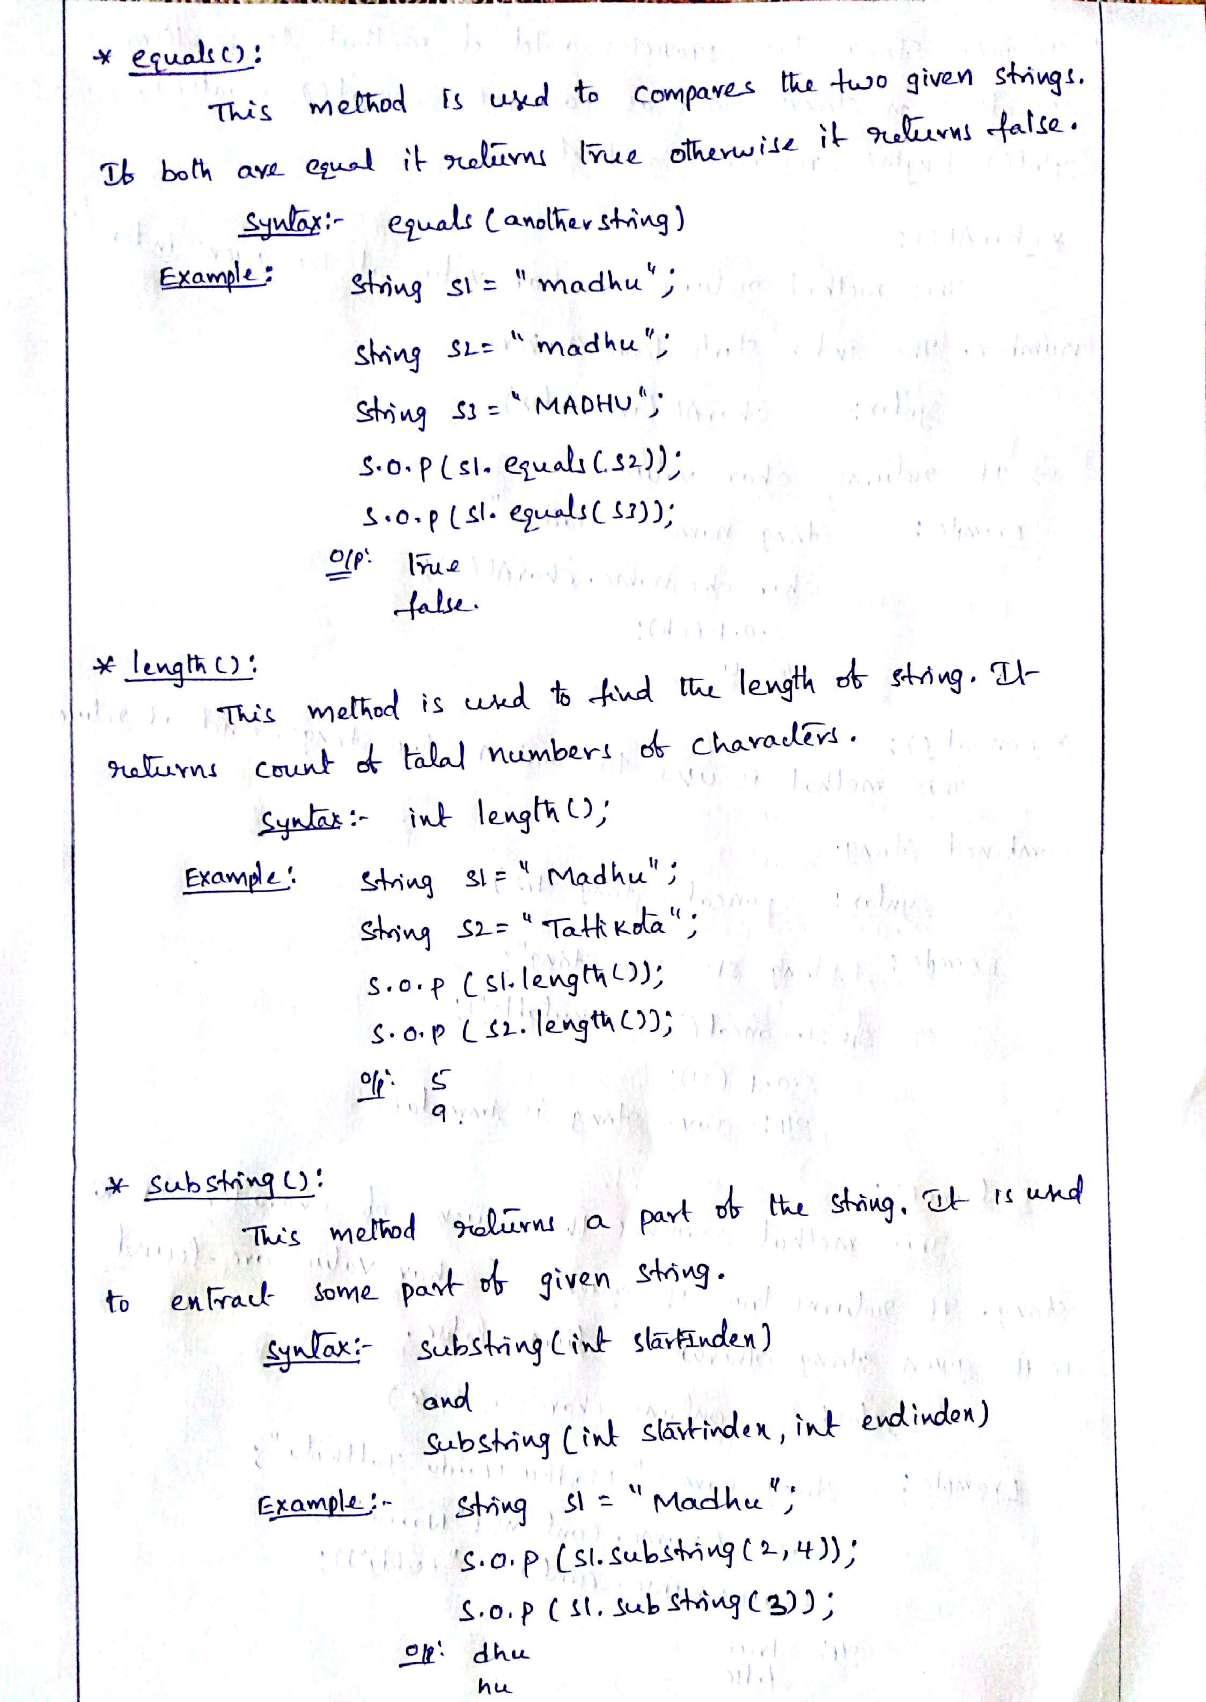 * equals():
This method is used to compares the two given strings.
If both are equal it returns true otherwise it returns false.
Syntax:- equals (another string)
Example: String s1 = "madhu";
String s2 = "madhu";
String s3 = "MADHU";
S.O.P (s1. equals (s2));
S.O.P (s1. equals (s3));
O/P: True
false.
* length():
This method is used to find the length of string. It
returns count of total numbers of characters.
Syntax:- int length();
Example: String s1 = "Madhu";
String s2 = "Tattikota";
S.O.P (s1.length());
S.O.P (s2.length());
O/P: 5
9.
* Substring():
This method returns a part of the string. It is used
to extract some part of given string.
Syntax:- substring (int startIndex)
and
substring (int startindex, int endindex)
Example:- String s1 = "Madhu";
S.O.P (s1.substring(2,4));
S.O.P (s1.substring(3));
O/P: dhu
hu